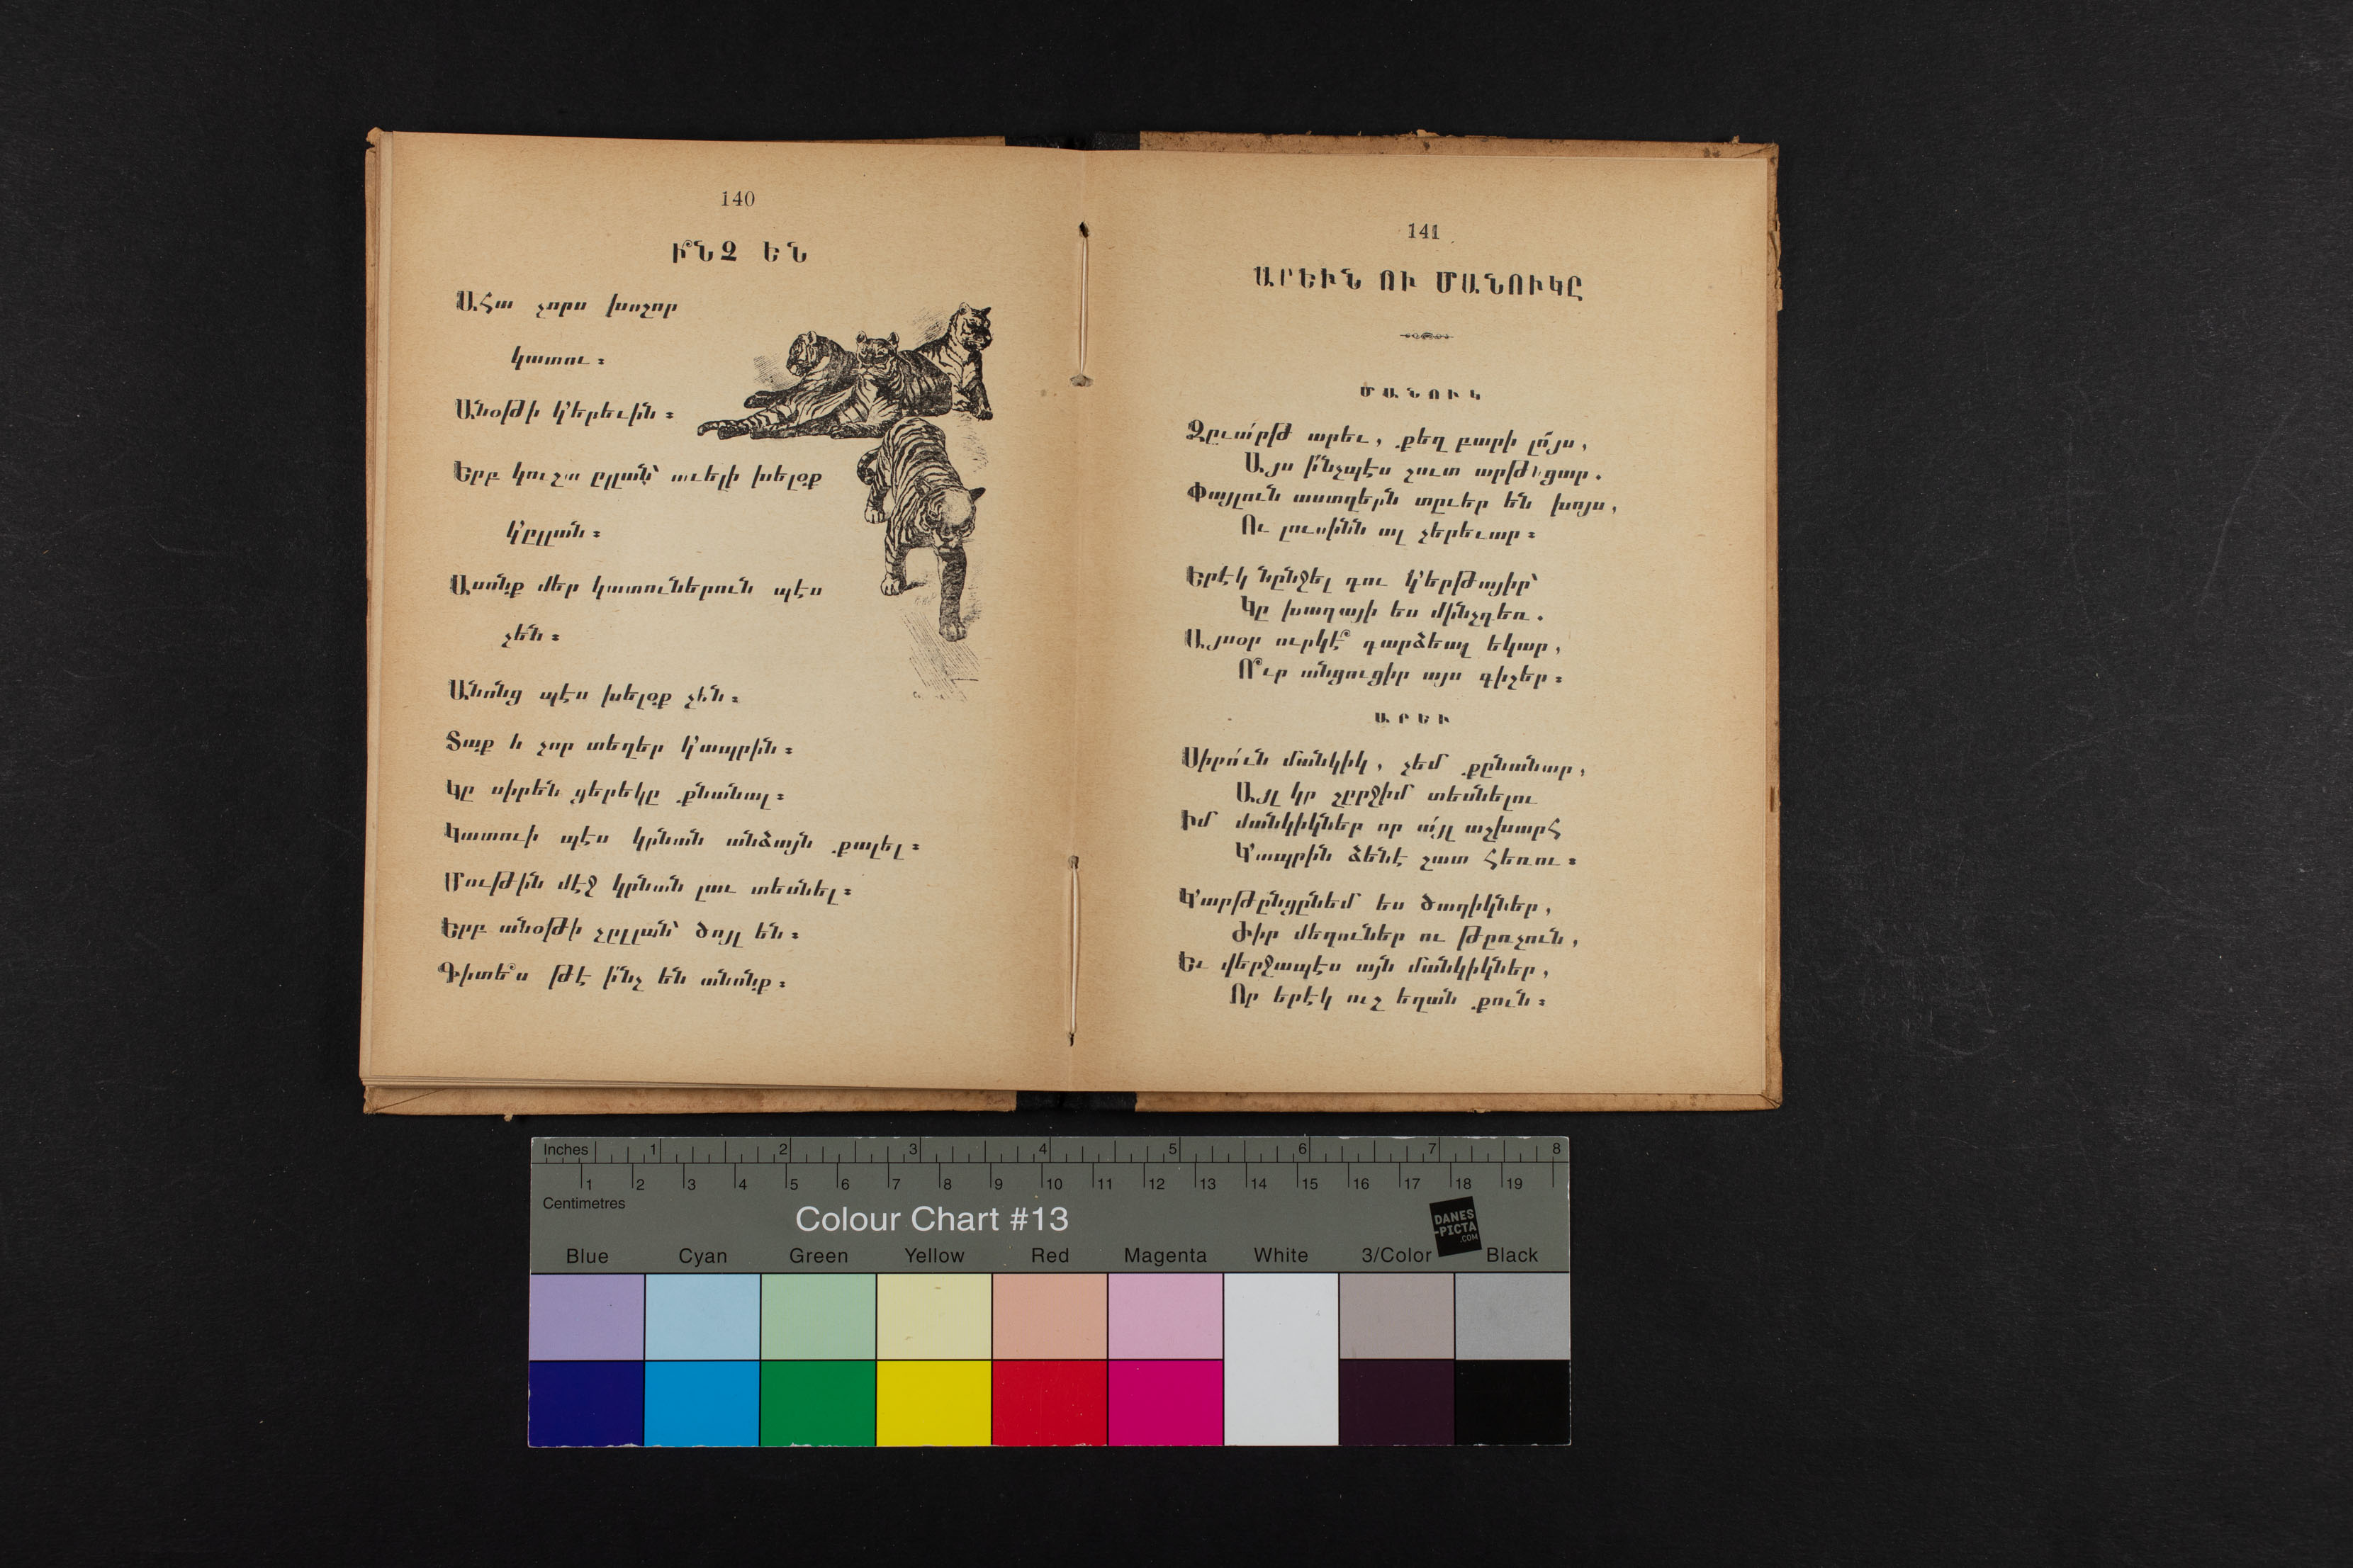 140
Ի՞ՆՉ ԵՆ
ԱՀա չորս խոշոր
կատու։
Անօթի կ՚երեւին։
Երբ կուշտ ըլլան՝ աւելի խելօք
կ՚ըլլան։
Ասոնք մեր կատուներուն պէս
չեն։
Անոնց պէս խելօք չեն։
Տաք և չոր տեղեր կ՚ապրին։
Կը սիրեն ցերեկը քնանալ։
Կատուի պէս կրնան անձայն քալել։
Մութին մէջ կրնան լաւ տեսնել։
Երբ անօթի չըլլան՝ ծոյլ են։
Գիտե՞ս թէ ի՛նչ են անոնք։
141
ԱՐԵԻՆ ՈՒ ՄԱՆՈՒԿԸ
ՄԱՆՈՒԿ
Զըւա՛րթ արեւ, քեզ բարի լո՜յս,
Այս ի՜նչպէս շուտ արթնցար.
Փայլուն աստղերն տըւեր են խոյս,
Ու լուսինն ալ չերեւար։
Երէկ նընջել դու կ՚երթայիր՝
Կը խաղայի ես մինչդեռ.
Այսօր ուրկէ՞ դարձեալ եկար,
Ո՞ւր անցուցիր այս գիշեր։
ԱՐԵՒ
Սիրո՛ւն մանկիկ, չեմ քընանար,
Այլ կը շըրջիմ տեսնելու
Իմ մանկիկներ որ ա՛յլ աշխարհ
Կ՚ապրին ձենէ շատ հեռու։
Կ՚արթընցընեմ ես ծաղիկներ,
Ժիր մեղուներ ու թըռչուն,
Եւ վերջապէս այն մանկիկներ,
Որ երէկ ուշ եղան քուն։
Inches 1 2 3 4 5 6 7 8
1 2 3 4 5 6 7 8 9 10 11 12 13 14 15 16 17 18 19
Centimetres
Colour Chart #13
DANES
-PICTA
.COM
Blue Cyan Green Yellow Red Magenta White 3/Color Black